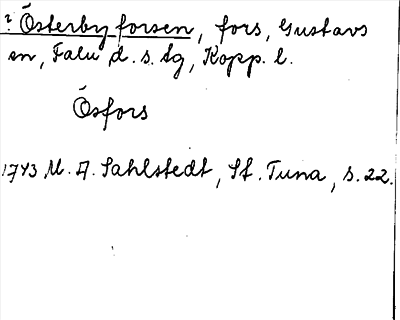 ? Österby forsen, fors, Gustavs
en, Falu d. s. tg, Kopp. l.
Ösfors
1743 M. A. Sahlstedt, St. Tuna, s. 22.